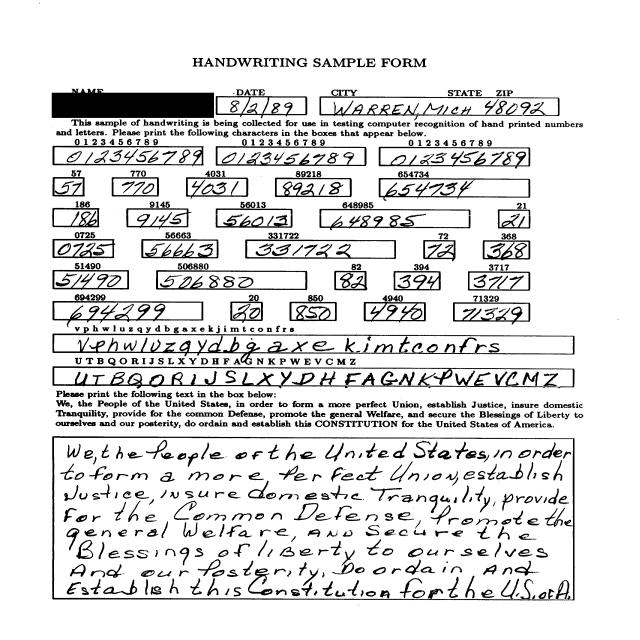 HANDWRITING SAMPLE FORM
NAME DATE CITY STATE ZIP
8/2/89 WARREN, MICH 48092
This sample of handwriting is being collected for use in testing computer recognition of hand printed numbers
and letters. Please print the following characters in the boxes that appear below.
0 1 2 3 4 5 6 7 8 9 0 1 2 3 4 5 6 7 8 9 0 1 2 3 4 5 6 7 8 9
0123456789 0123456789 0123456789
57 770 4031 89218 654734
57 770 4031 89218 654734
186 9145 56013 648985 21
186 9145 56013 648985 21
0725 56663 331722 72 368
0725 56663 331722 72 368
51490 506880 82 394 3717
51490 506880 82 394 3717
694299 20 850 4940 71329
694299 20 850 4940 71329
v p h w l u z q y d b g a x e k j i m t c o n f r s
vphwluzqydbgaxekjimtconfrs
U T B Q O R I J S L X Y D H F A G N K P W E V C M Z
UTBQORIJSLXYDHFAGNKPWEVCMZ
Please print the following text in the box below:
We, the People of the United States, in order to form a more perfect Union, establish Justice, insure domestic
Tranquility, provide for the common Defense, promote the general Welfare, and secure the Blessings of Liberty to
ourselves and our posterity, do ordain and establish this CONSTITUTION for the United States of America.
We, the People of the United States, in order
to form a more, Perfect Union, establish
Justice, insure domestic Tranquility, provide
For the Common Defense, Promote the
general Welfare, AND Secure the
Blessings of liberty to ourselves
And our Posterity, Do ordain And
Establish this Constitution for the U.S. of A.